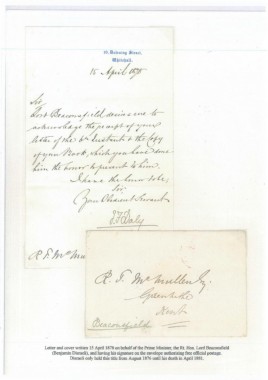 10, Downing Street,
Whitehall.
15 April 1878
Sir
Lord Beaconsfield desires me to
acknowledge the receipt of your
letter of the Instant & the Copy
of your Book, which you have done
him the honor to present to him.
I have the honor to be
Sir
Your Obedient Servant
J F Daly
R. F. McMu
R. F. McMullen Esq
Greenwich
Kent
Beaconsfield
Letter and cover written 15 April 1878 on behalf of the Prime Minister, the Rt. Hon. Lord Beaconsfield
(Benjamin Disraeli), and having his signature on the envelope authorising free official postage.
Disraeli only held this title from August 1876 until his death in April 1881.